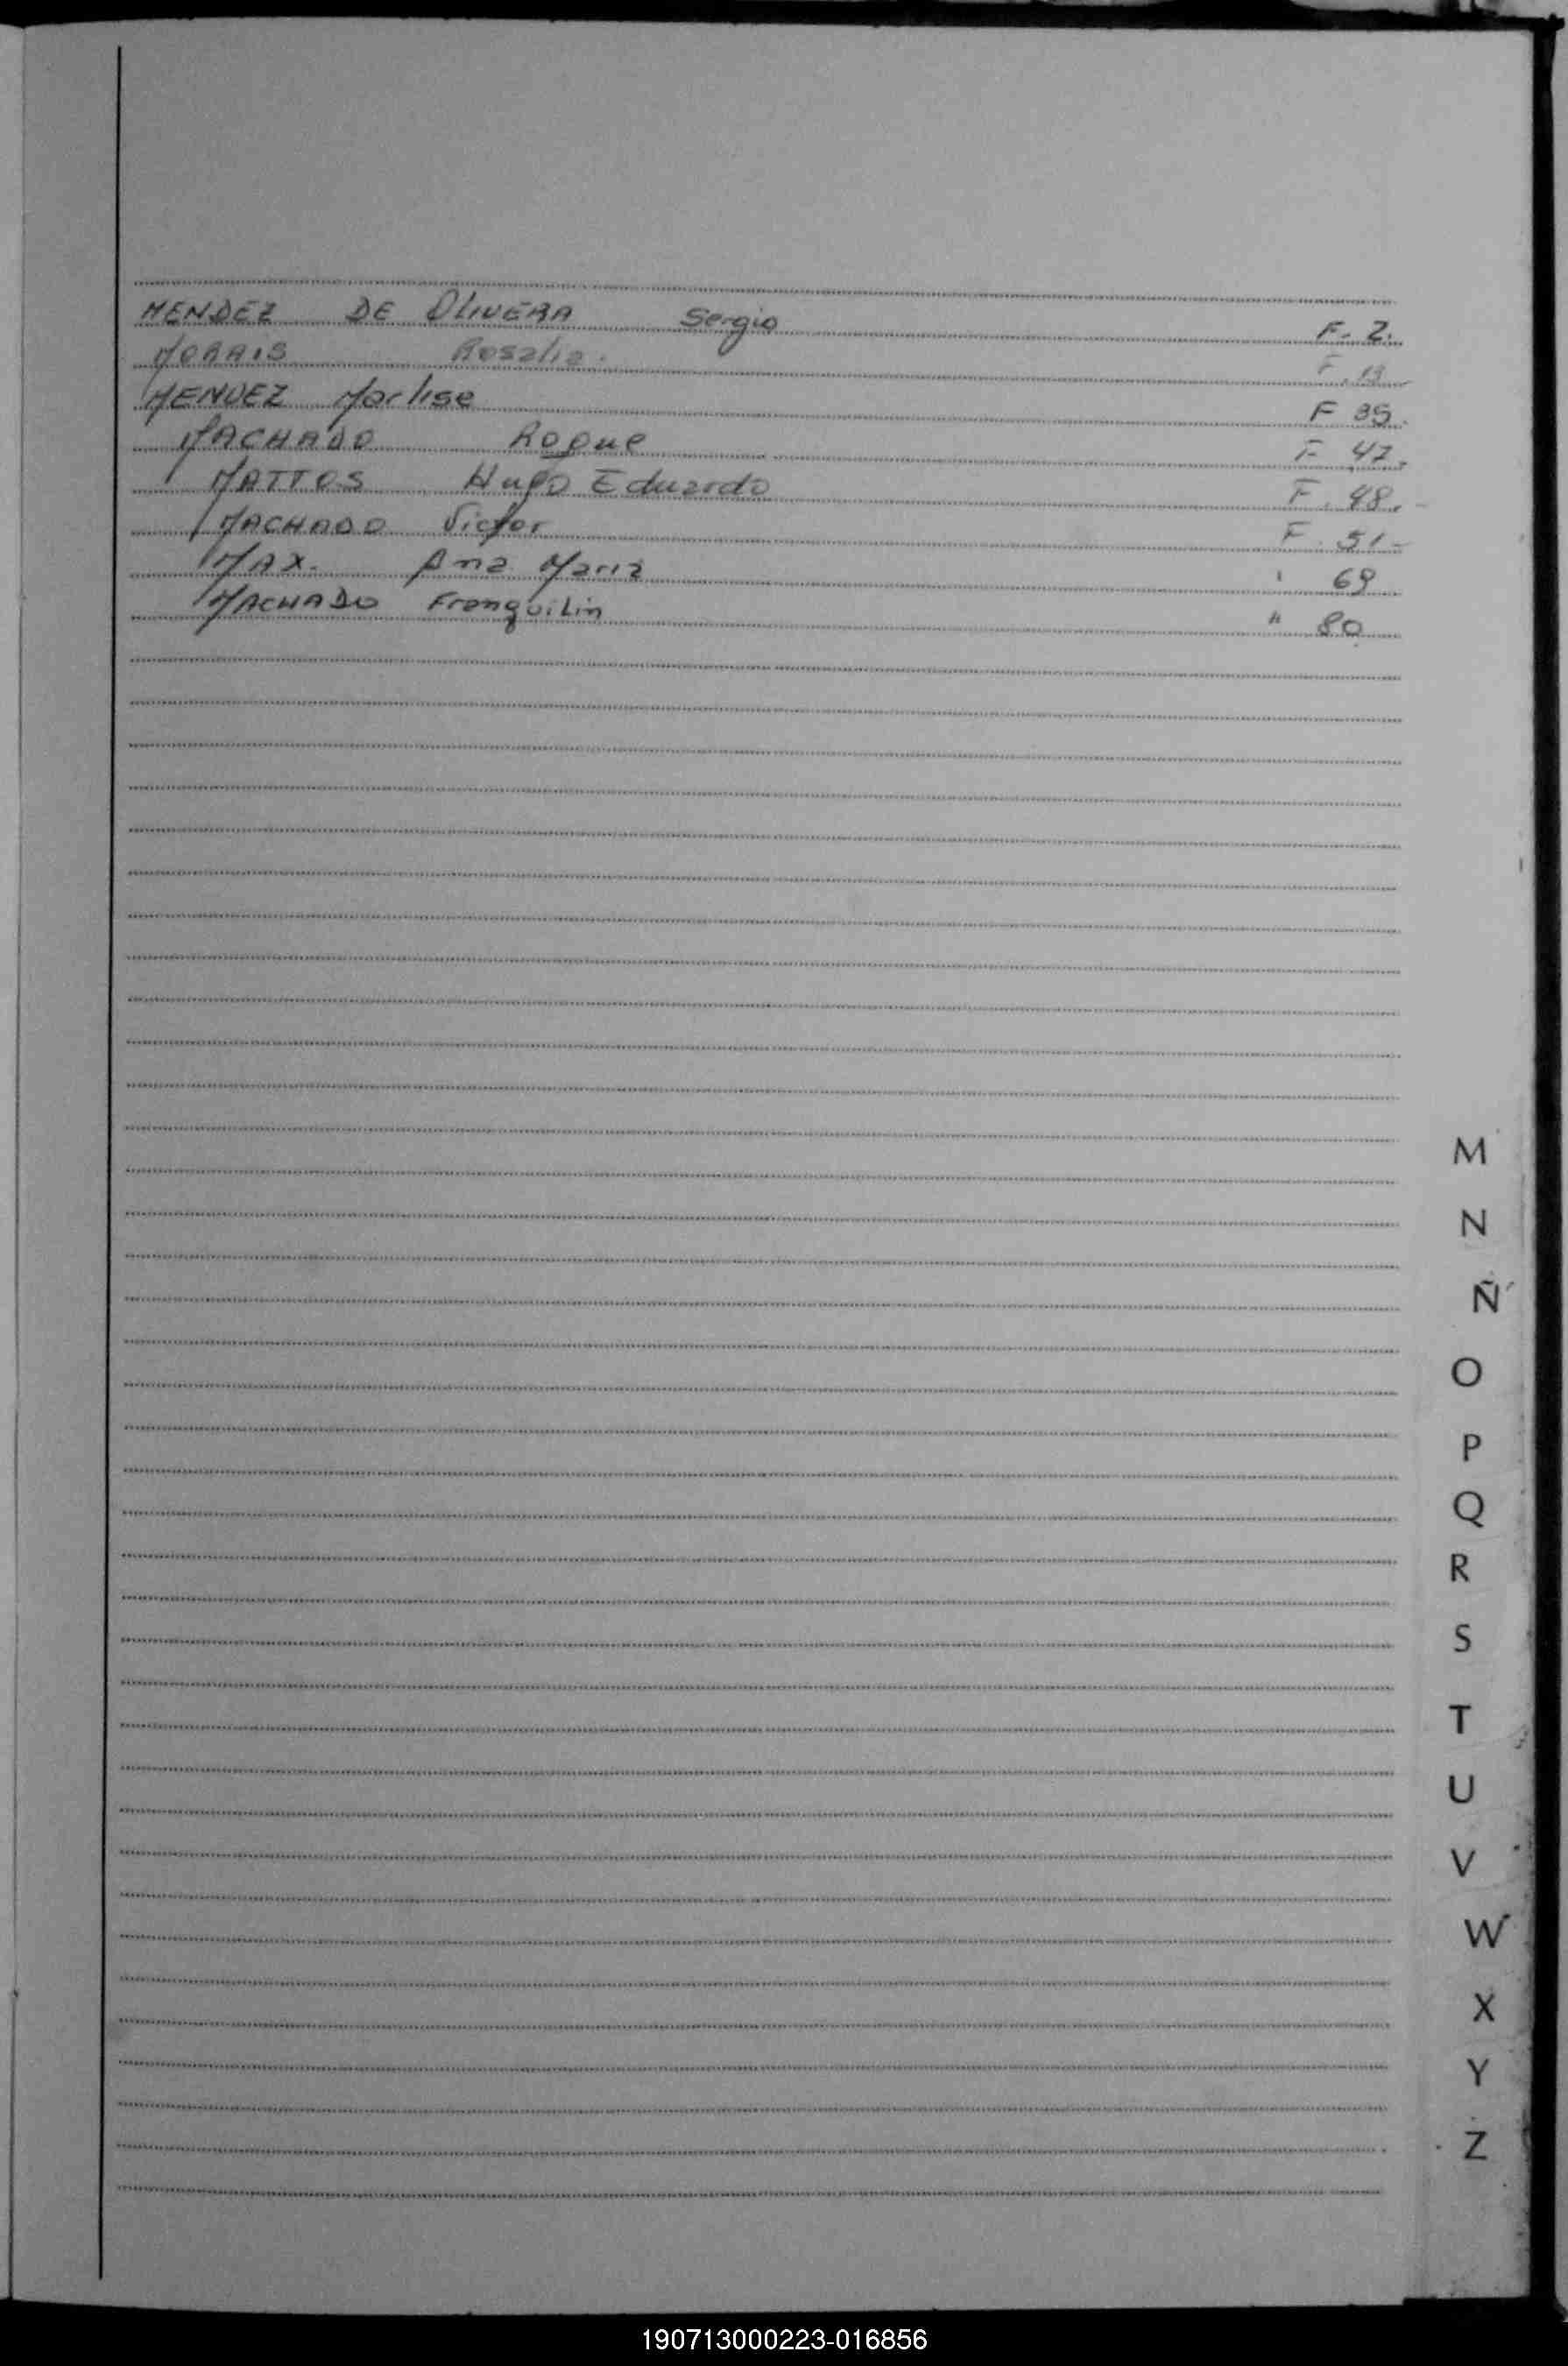 MENDEZ DE OLIVERA Sergio F. 2.
MORAIS Rosalia. F. 13
MENDEZ Marlise F 35.
MACHADO Roque F 47.
MATTOS Hugo Eduardo F. 48.
MACHADO Victor F. 51-
MAX. Ana Maria " 69
MACHADO Franquilin " 80
M
N
Ñ
O
P
Q
R
S
T
U
V
W
X
Y
Z
190713000223-016856